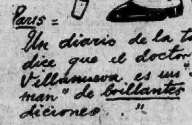 Paris =
Un diario de la t
dice que el doctor
Villanueva es un "
man" de brillantes
diciones."